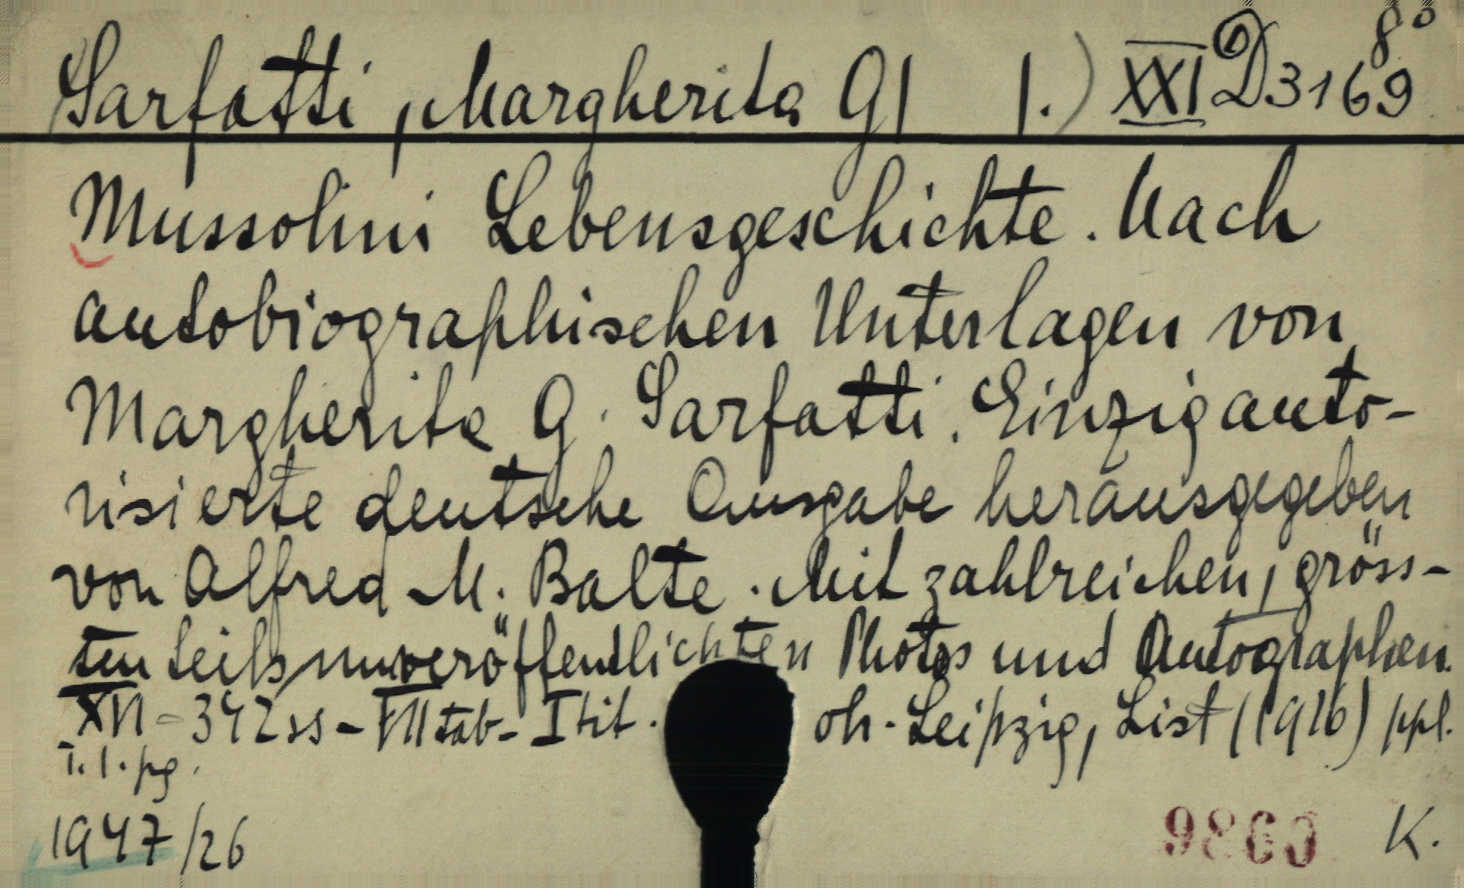 Sarfatti, Margherita G| 1.) XXI D 3169 8°
Mussolini Lebensgeschichte. Nach
autobiographischen Unterlagen von
Margherita G. Sarfatti. Einzig auto-
risierte deutsche Ausgabe herausgegeben
von Alfred M. Balte. Mit zahlreichen, gröss-
tenteils unveröffentlichten Photos und Autographen.
XVI - 342 ss - VIII tab - I tit. oh. Leipzig, List (1926) ppl.
T.l.pg.
1947/26 9860 K.